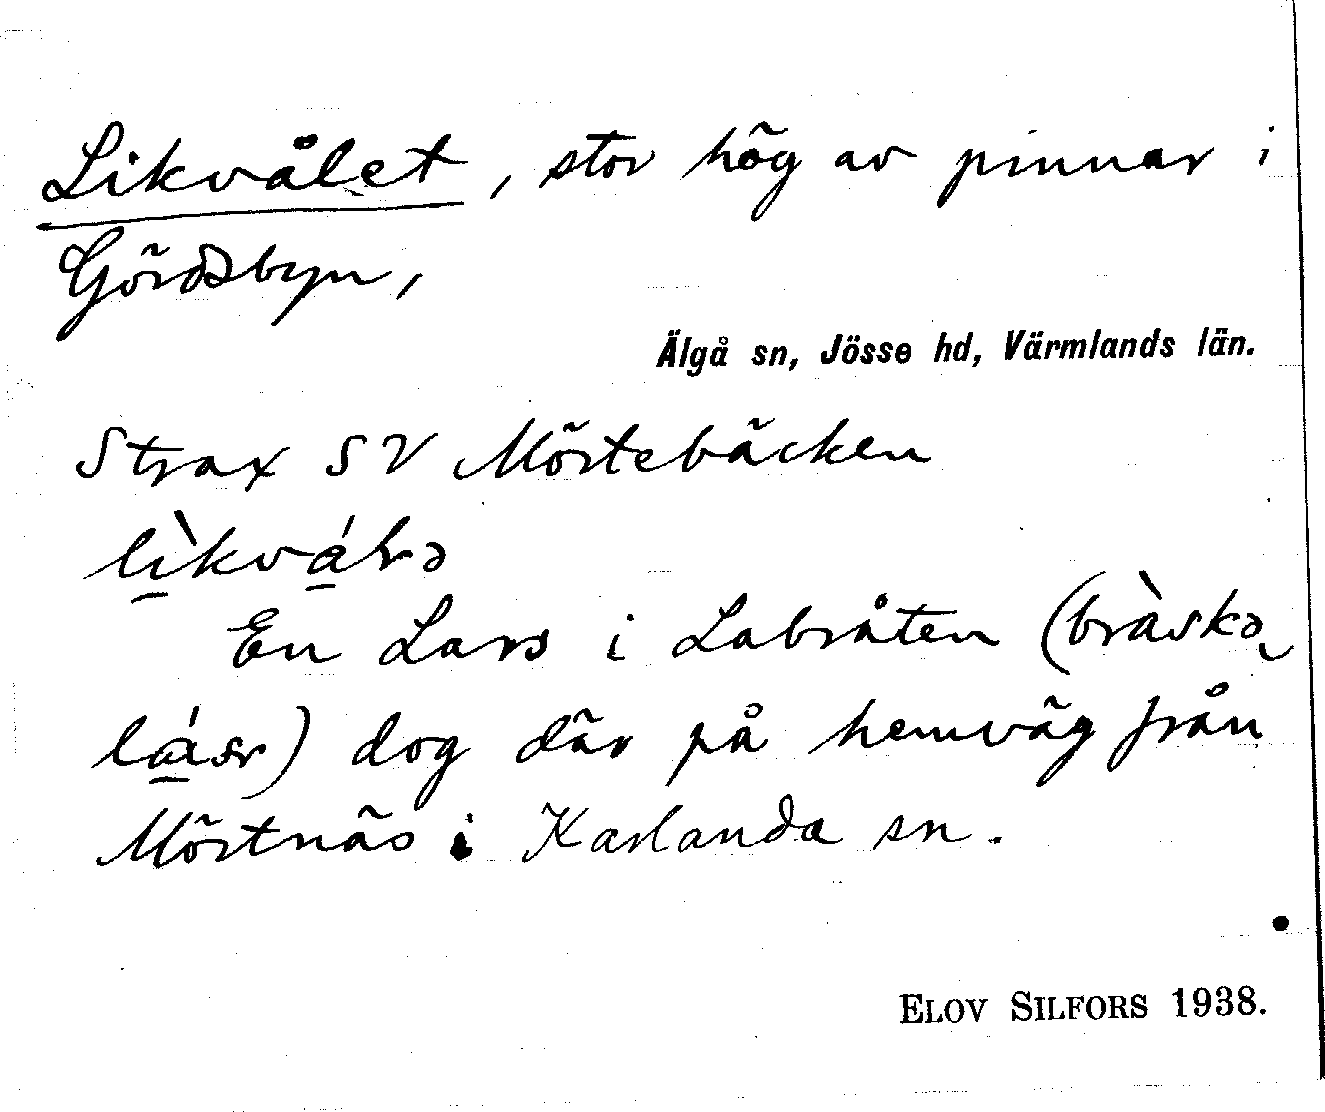 Likvålet, stor hög av pinnar i
Gördsbyn,
Älgå sn, Jösse hd, Värmlands län.
Strax SV Mörtebäcken
En Lars i Labråten (bràskə
dog där på hemväg från
Mörtnäs i Karlanda sn.
ELOV SILFORS 1938.